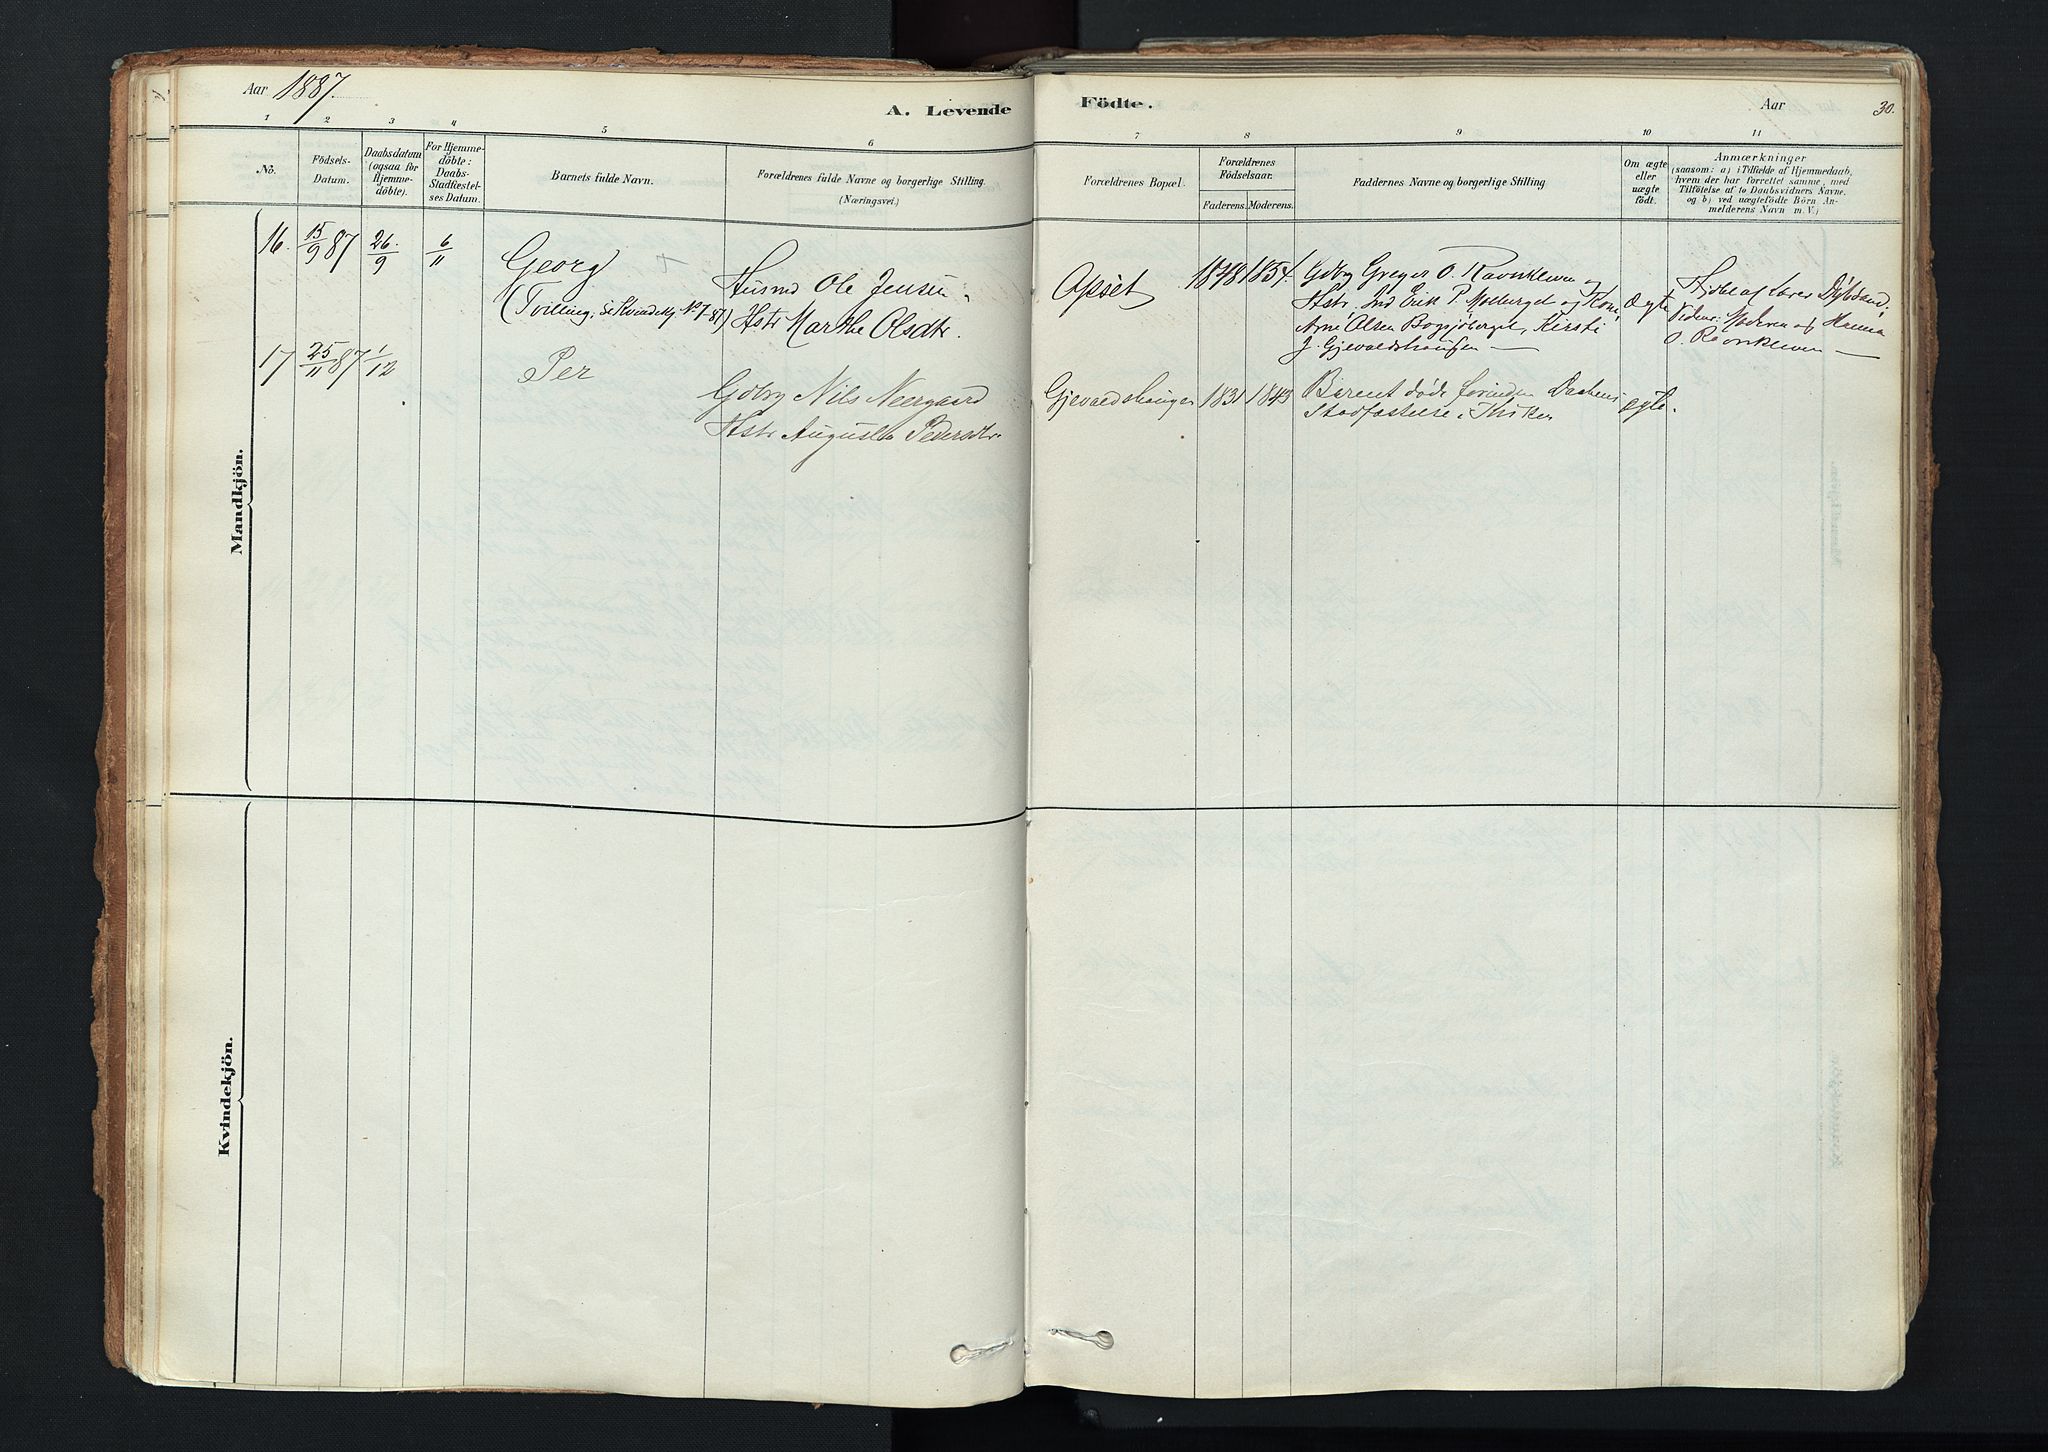 Aar 1887.
A. Levende Födte.
Aar
30.
1 2 3 4 5 6 7 8 9 10 11
No.
Födsels-
Datum.
Daabsdatum
(ogsaa for
Hjemme-
döbte).
For Hjemme-
döbte:
Daabs-
Stadfæstel-
ses Datum.
Barnets fulde Navn.
Forældrenes fulde Navne og borgerlige Stilling.
(Næringsvei.)
Forældrenes Bopæl.
Forældrenes
Födselsaar.
Faderens. Moderens.
Faddernes Navne og borgerlige Stilling
Om ægte
eller
uægte
födt.
Anmærkninger
(saasom: a) i Tilfælde af Hjemmedaab,
hvem der har forrettet samme, med
Tilföielse af to Daabsvidners Navne.
og b) ved uægtefödte Börn An-
melderens Navn m. V.)
Mandkjön.
16. 15/9 87 26./9 6/11
Georg
(Tvilling, se Kvindekj. No 7-87)
Husmd Ole Jensen,
Hstr Marthe Olsdtr.
Apsèt
1848 1854.
Gdbr Greger O. Ravnkleven og
Hstr. Erik P. og Kone
Arne Olsen Kirsti
J. Gjevaldshaugen
Ægte
Hjdbt af
Moderen og Hanna
O. Ravnkleven
17 25/11 87 1/12
Per
Gdbr Nils Neergaard
Hstr Augusta Pedersdtr.
Gjevaldshaugen
1831 1843
Barnet døde forinden Daabens
Stadfæstelse i Kirken
ægte.
Kvindekjön.